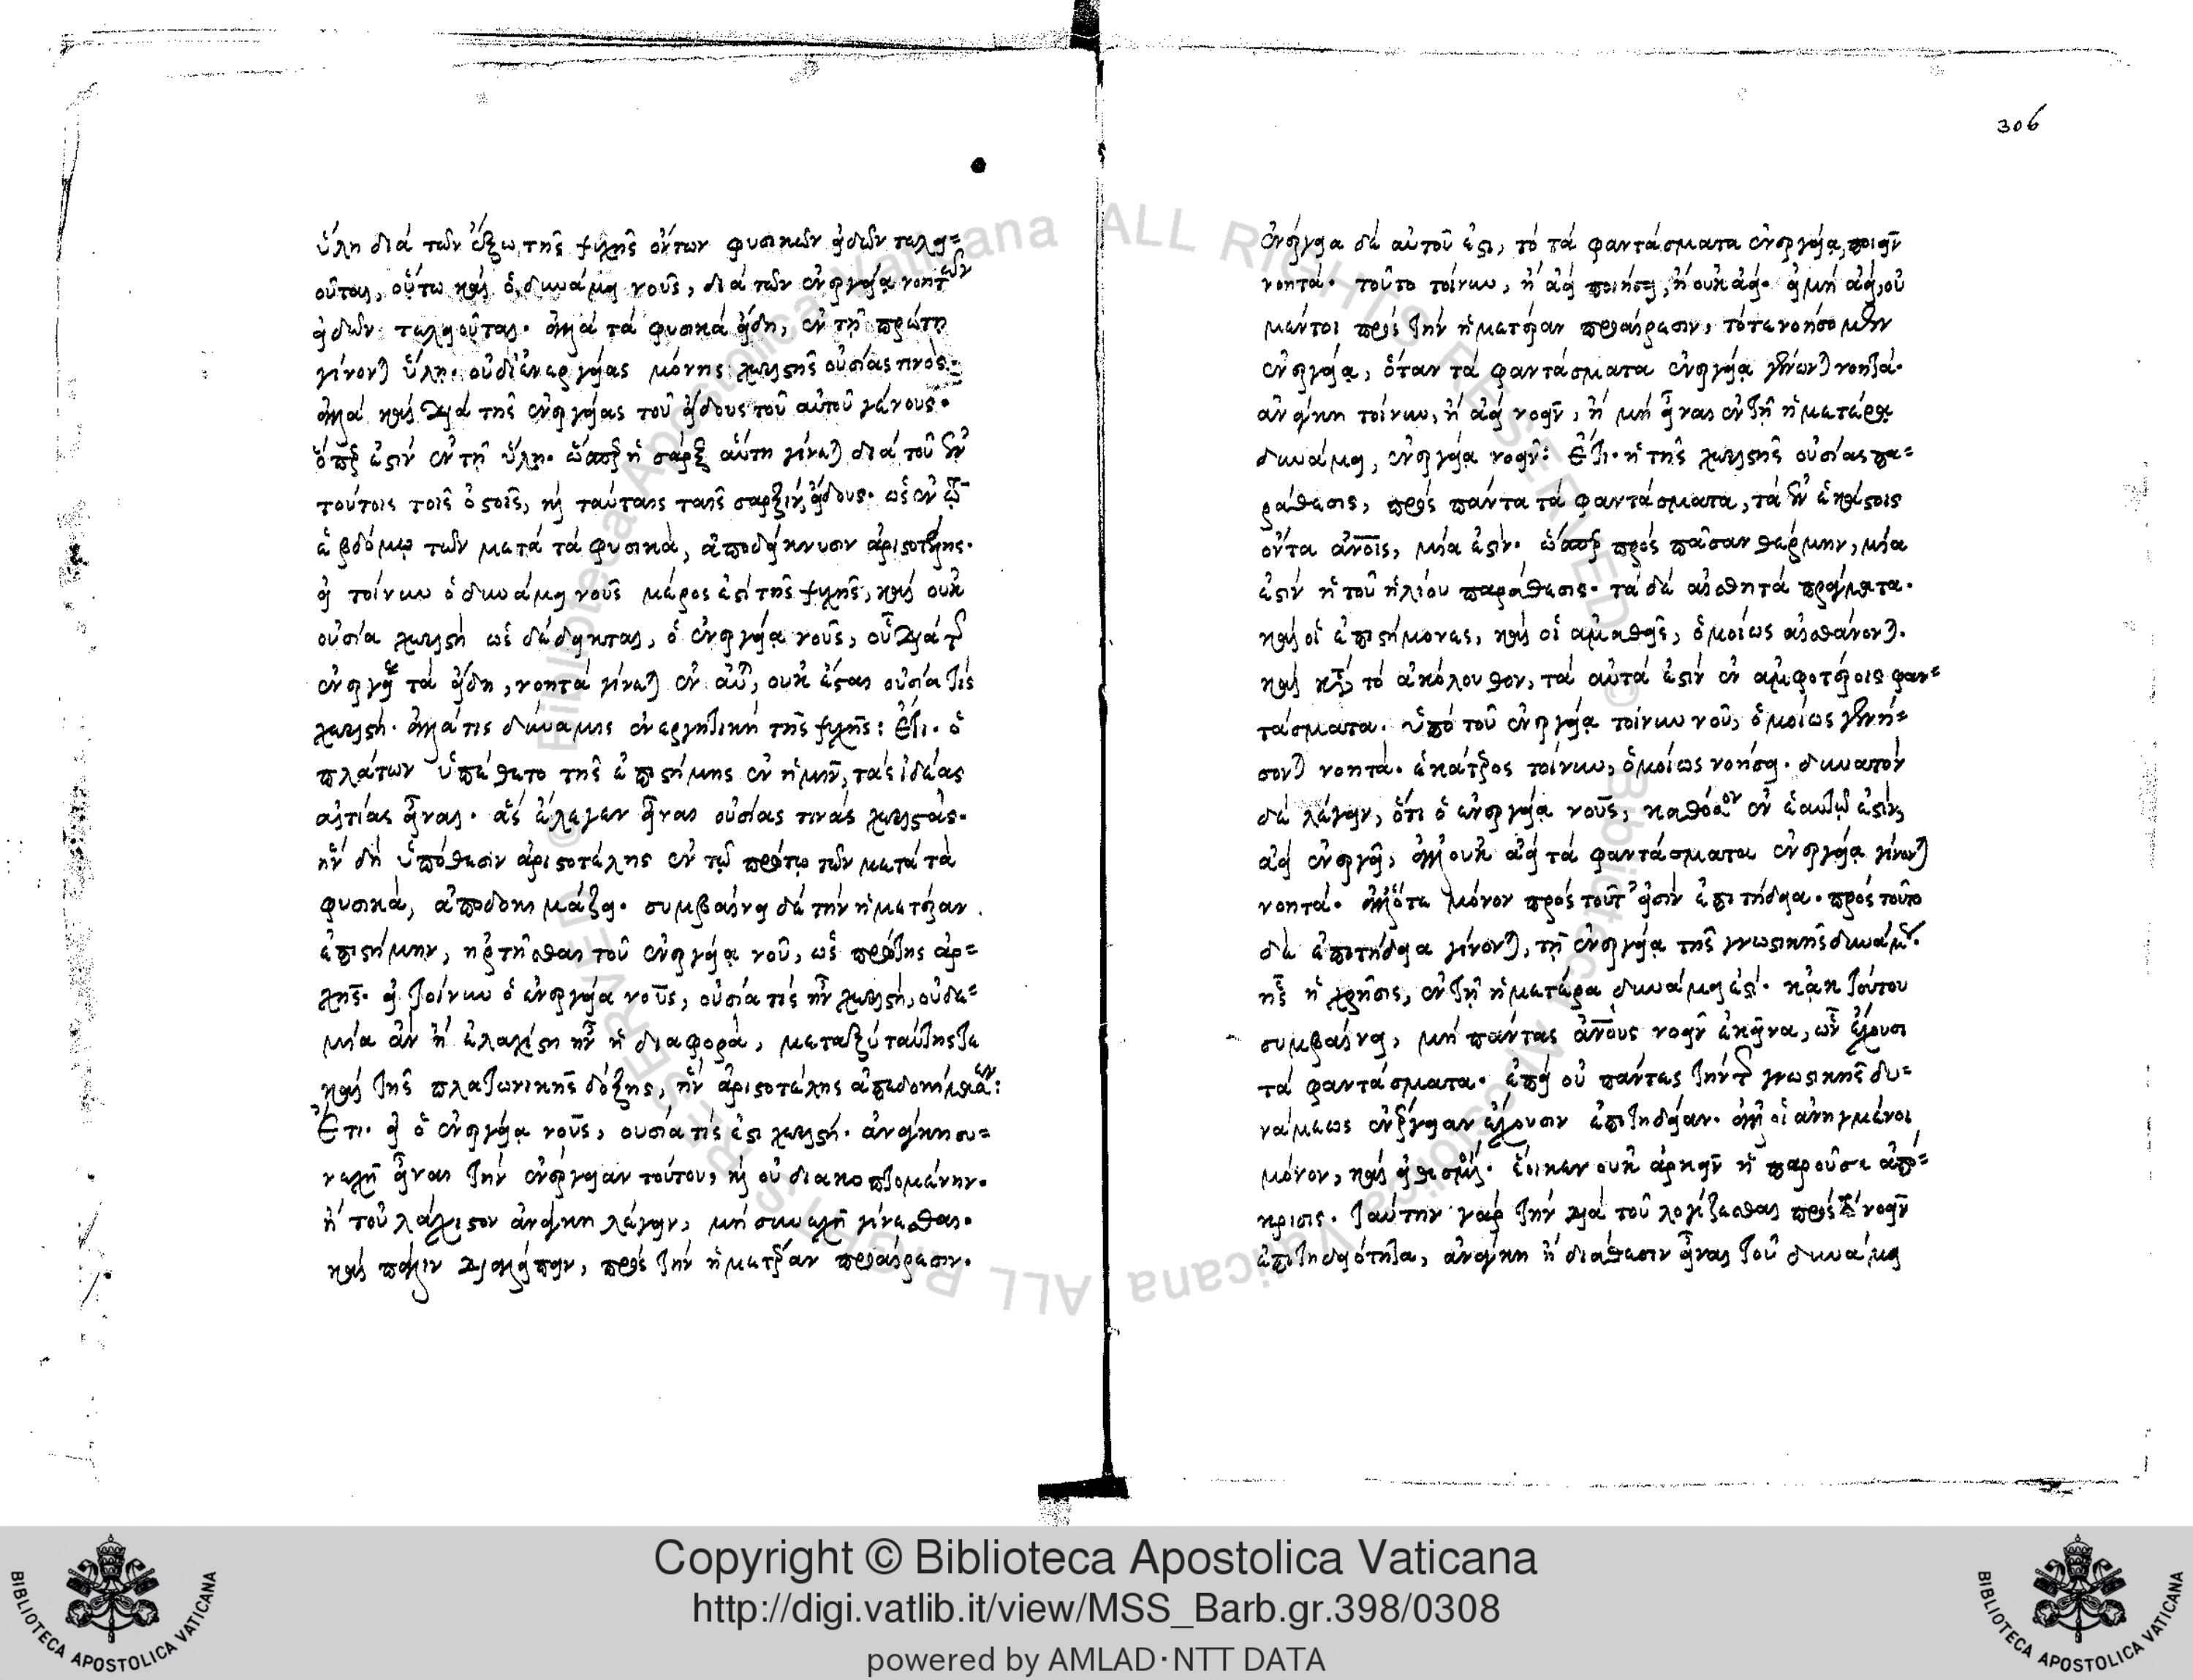 ὕλη διὰ τῶν ἔξω τῆς ψυχῆς ὄντων φυσικῶν εἰδῶν τελει=
οῦται, οὕτω καὶ ὁ δυνάμει νοῦς, διὰ τῶν ἐνεργείᾳ νοητῶν
εἰδῶν τελειοῦται. ἀλλὰ τὰ φυσικὰ εἴδη, ἐν τῇ πρώτῃ
γίνονται ὕλῃ. οὐ δι' ἐνεργείας μόνης χωριστῆς οὐσίας τινός.
ἀλλὰ καὶ διὰ τῆς ἐνεργείας τοῦ εἴδους τοῦ αὐτοῦ γένους.
ὅπερ ἐστὶν ἐν τῇ ὕλῃ. ὥσπερ ἡ σὰρξ αὕτη γίνεται διὰ τοῦ ἐν
τούτοις τοῖς ὀστοῖς, καὶ ταύταις ταῖς σαρξὶν εἴδους. ὡς ἐν τῷ
ἑβδόμῳ τῶν μετὰ τὰ φυσικά, ἀποδείκνυσιν ἀριστοτέλης.
εἰ τοίνυν ὁ δυνάμει νοῦς μέρος ἐστὶ τῆς ψυχῆς, καὶ οὐκ
οὐσία χωριστὴ ὡς δέδεικται, ὁ ἐνεργείᾳ νοῦς, οὗ διὰ τῆς
ἐνεργείας τὰ εἴδη, νοητὰ γίνεται ἐν αὐτῷ, οὐκ ἔσται οὐσία τὶς
χωριστή. ἀλλά τις δύναμις ἐνεργητικὴ τῆς ψυχῆς: Ἔτι. ὁ
πλάτων ὑπέθετο τῆς ἐπιστήμης ἐν ἡμῖν, τὰς ἰδέας
αἰτίας εἶναι. ἃς ἔλεγεν εἶναι οὐσίας τινὰς χωριστάς.
ἣν δὴ ὑπόθεσιν ἀριστοτέλης ἐν τῷ πρώτῳ τῶν μετὰ τὰ
φυσικά, ἀποδοκιμάζει. συμβαίνει δὲ τὴν ἡμετέραν
ἐπιστήμην, ἠρτῆσθαι τοῦ ἐνεργείᾳ νοῦ, ὡς πρώτης ἀρ=
χῆς. εἰ τοίνυν ὁ ἐνεργείᾳ νοῦς, οὐσία τὶς ἦν χωριστή, οὐδε=
μία ἂν ἢ ἐλαχίστη ἦν ἡ διαφορά, μεταξὺ ταύτης τε
καὶ τῆς πλατωνικῆς δόξης, ἣν ἀριστοτέλης ἀπεδοκίμασεν:
Ἔτι. εἰ ὁ ἐνεργείᾳ νοῦς, οὐσία τίς ἐστι χωριστή. ἀνάγκη συ=
νεχῆ εἶναι τὴν ἐνέργειαν τούτου, καὶ οὐ διακοπτομένην.
ἢ τοὐλάχιστον ἀνάγκη λέγειν, μὴ συνεχῆ γίνεσθαι.
καὶ πάλιν διαλείπειν, πρὸς τὴν ἡμετέραν προαίρεσιν.
306
ἐνέργεια δὲ αὐτοῦ ἐστι, τὸ τὰ φαντάσματα ἐνεργείᾳ ποιεῖν
νοητά. τοῦτο τοίνυν, ἢ ἀεὶ ποιήσει, ἢ οὐκ ἀεί. εἰ μὴ ἀεί, οὐ
μέντοι πρὸς τὴν ἡμετέραν προαίρεσιν, τότε νοήσομεν
ἐνεργείᾳ, ὅταν τὰ φαντάσματα ἐνεργείᾳ γένωνται νοητά.
ἀνάγκη τοίνυν, ἢ ἀεὶ νοεῖν, ἢ μὴ εἶναι ἐν τῇ ἡμετέρᾳ
δυνάμει, ἐνεργείᾳ νοεῖν: Ἔτι. ἡ τῆς χωριστῆς οὐσίας πα=
ράθεσις, πρὸς πάντα τὰ φαντάσματα, τὰ ἐν ἑκάστοις
ὄντα ἀνοις, μία ἐστίν. ὥσπερ πρὸς πᾶσαν θέρμην, μία
ἐστὶν ἡ τοῦ ἡλίου παράθεσις. τὰ δὲ αἰσθητὰ πράγματα.
καὶ οἱ ἐπιστήμονες, καὶ οἱ ἀμαθεῖς, ὁμοίως αἰσθάνονται.
καὶ κατὰ τὸ ἀκόλουθον, τὰ αὐτά ἐστιν ἐν ἀμφοτέροις φαν=
τάσματα. ὑπὸ τοῦ ἐνεργείᾳ τοίνυν νοῦ, ὁμοίως γενή=
σονται νοητά. ἑκάτερος τοίνυν, ὁμοίως νοήσει. δυνατὸν
δὲ λέγειν, ὅτι ὁ ἐνεργείᾳ νοῦς, καθόσον ἐν ἑαυτῷ ἐστίν,
ἀεὶ ἐνεργεῖ, ἀλλ' οὐκ ἀεὶ τὰ φαντάσματα ἐνεργείᾳ γίνονται
νοητά. ἀλλ' ὅτε μόνον πρὸς τοῦτ' εἰσὶν ἐπιτήδεια. πρὸς τοῦτο
δὲ ἐπιτήδεια γίνονται, τῇ ἐνεργείᾳ τῆς γνωστικῆς δυνάμεως.
ἧς ἡ χρῆσις, ἐν τῇ ἡμετέρᾳ δυνάμει ἐστί. κἀκ τούτου
συμβαίνει, μὴ πάντας ἀνους νοεῖν ἐκεῖνα, ὧν ἔχουσι
τὰ φαντάσματα. ἐπεὶ οὐ πάντες τὴν τῆς γνωστικῆς δυ=
νάμεως ἐνέργειαν ἔχουσιν ἐπιτηδείαν. ἀλλ' οἱ ἀνηγμένοι
μόνον, καὶ εἰθισμένοι. ἔοικεν οὐκ ἀρκεῖν ἡ παροῦσα ἀπό=
κρισις. ταύτην γὰρ τὴν διὰ τοῦ λογίζεσθαι πρὸς τὸ νοεῖν
ἐπιτηδειότητα, ἀνάγκη ἢ διάθεσιν εἶναι τοῦ δυνάμει
Copyright © Biblioteca Apostolica Vaticana
http://digi.vatlib.it/view/MSS_Barb.gr.398/0308
powered by AMLAD·NTT DATA
BIBLIOTECA APOSTOLICA VATICANA
BIBLIOTECA APOSTOLICA VATICANA